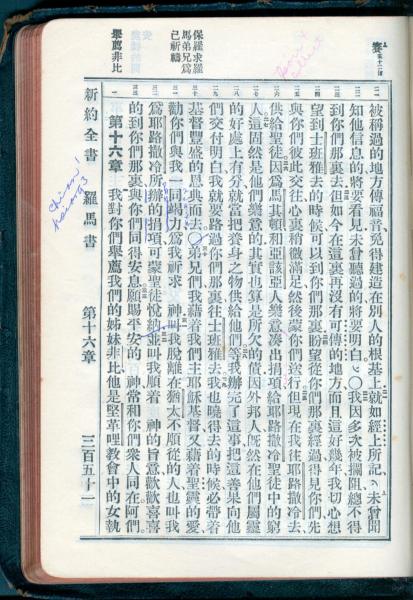 被稱過的地方傳福音免得建造在別人的根基上就如經上所記未曾聞
知他信息的將要看見未曾聽過的將要明白○我因多次被攔阻總不得
到你們那裏去但如今在這裏再沒有可傳的地方而且這好幾年我切心想
望到士班雅去的時候可以到你們那裏盼望從你們那裏經過得見你們先
與你們彼此交往心裏稍微滿足然後蒙你們送行但現在我往耶路撒冷去
供給聖徒因為馬其頓和亞該亞人樂意湊出捐項給耶路撒冷聖徒中的窮
人這固然是他們樂意的其實也算是所欠的債因外邦人旣然在他們屬靈
的好處上有分就當把養身之物供給他們等我辦完了這事把這善果向他
們交付明白我就要路過你們那裏往士班雅去我也曉得去的時候必帶着
保羅求羅
馬弟兄為
己祈禱
基督豐盛的恩典而去○弟兄們我藉着我們主耶穌基督又藉着聖靈的愛
勸你們與我一同竭力為我祈求 神叫我脫離在猶太不順從的人也叫我
為耶路撒冷所辦的捐項可蒙聖徒悅納並叫我順着 神的旨意歡歡喜喜
的到你們那裏與你們同得安息願賜平安的 神常和你們眾人同在阿們
舉薦非比
第十六章 我對你們舉薦我們的姊妹非比他是堅革哩教會中的女執
新約全書 羅馬書 第十六章 三百五十一